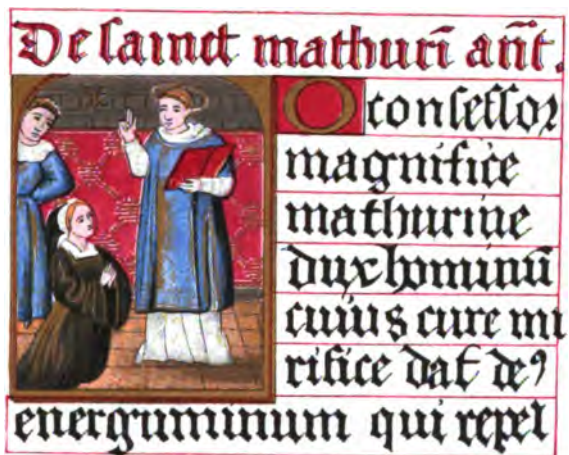 De sainct mathurī añt.
O confessor
magnifice
mathurine
dux hominū
cuius cure mi
rifice dat deꝰ
energuminum qui repel